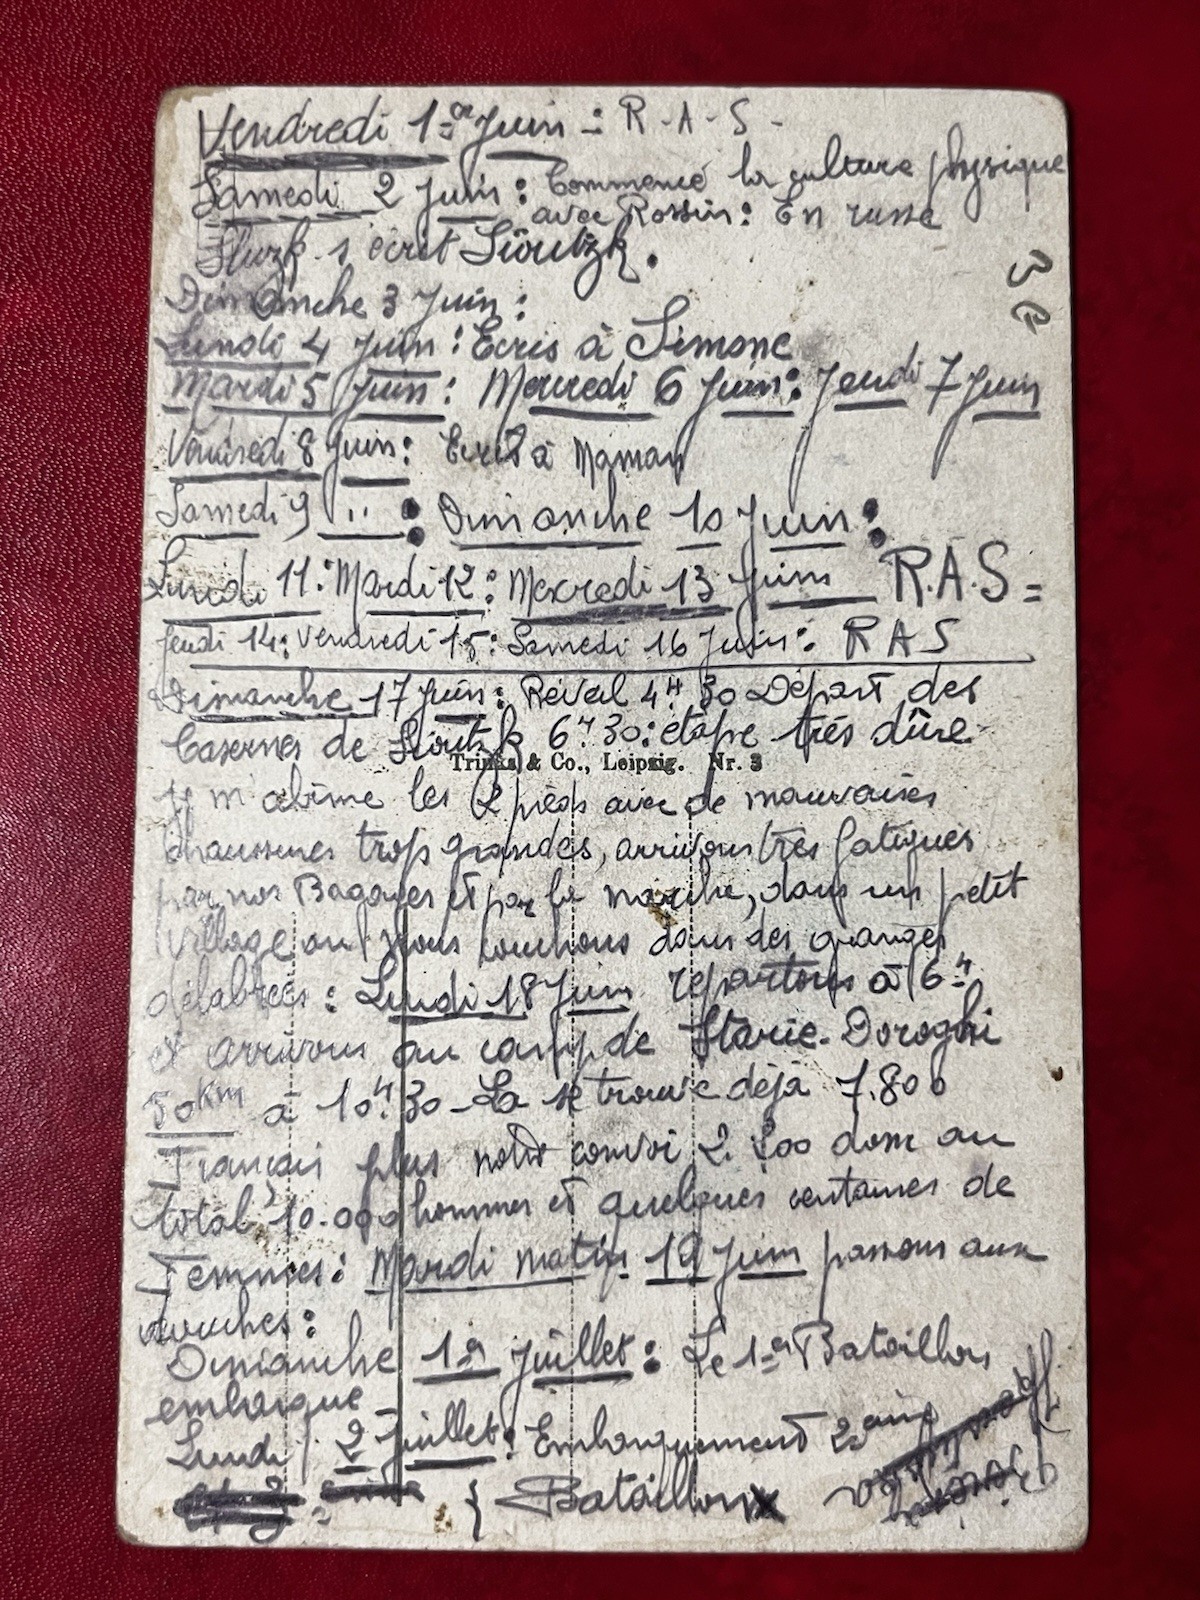 Vendredi 1er Juin : R-A-S-
Samedi 2 Juin : Commencé la culture physique
avec Rossin : En russe
Sluzk s'écrit Sioutzk.
Dimanche 3 Juin :
Lundi 4 Juin : Ecris à Simone
Mardi 5 Juin : Mercredi 6 Juin : Jeudi 7 Juin
Vendredi 8 Juin : Ecrit à Maman
Samedi 9 " : Dimanche 10 Juin :
Lundi 11 : Mardi 12 : Mercredi 13 Juin R.A.S =
Jeudi 14 : Vendredi 15 : Samedi 16 Juin : R A S
Dimanche 17 Juin : Réveil 4H 30 Départ des
Casernes de Sioutzk 6H 30 : étape très dûre
Trinks & Co., Leipzig. Nr. 3
m'abîme les 2 pieds avec de mauvaises
chaussures trop grandes, arrivons très fatigués
par nos Bagages et par la marche, dans un petit
village où nous couchons dans des granges
délabrées : Lundi 18 Juin repartons à 6H
et arrivons au camp de Starie-Doroghi
50 Km à 10H 30 - La se trouve déjà 7.800
Français plus notre convoi 2. donc au
total 10.000 hommes et quelques centaines de
Femmes : Mardi matin 19 Juin passons aux
douches :
Dimanche 1er Juillet : Le 1er Bataillon
embarque
Lundi 2 Juillet : Embarquement
Bataillon